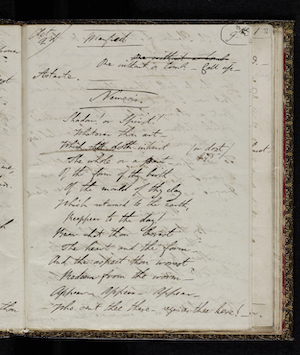 Manfred
9
One without a tomb — Call up
Astarte.
Nemesis.
Shadow! or Spirit!
Whatever thou art
Which still doth inherit (or dost)
The whole or a part
Of the form of thy birth
Of the mould of thy clay
Which returned to the Earth,
Reappear to the day!
Bear what thou borest
The heart and the form
And the aspect thou worest
Redeem from the worm
Appear — Appear — Appear —
Who sent thee there requires thee here!